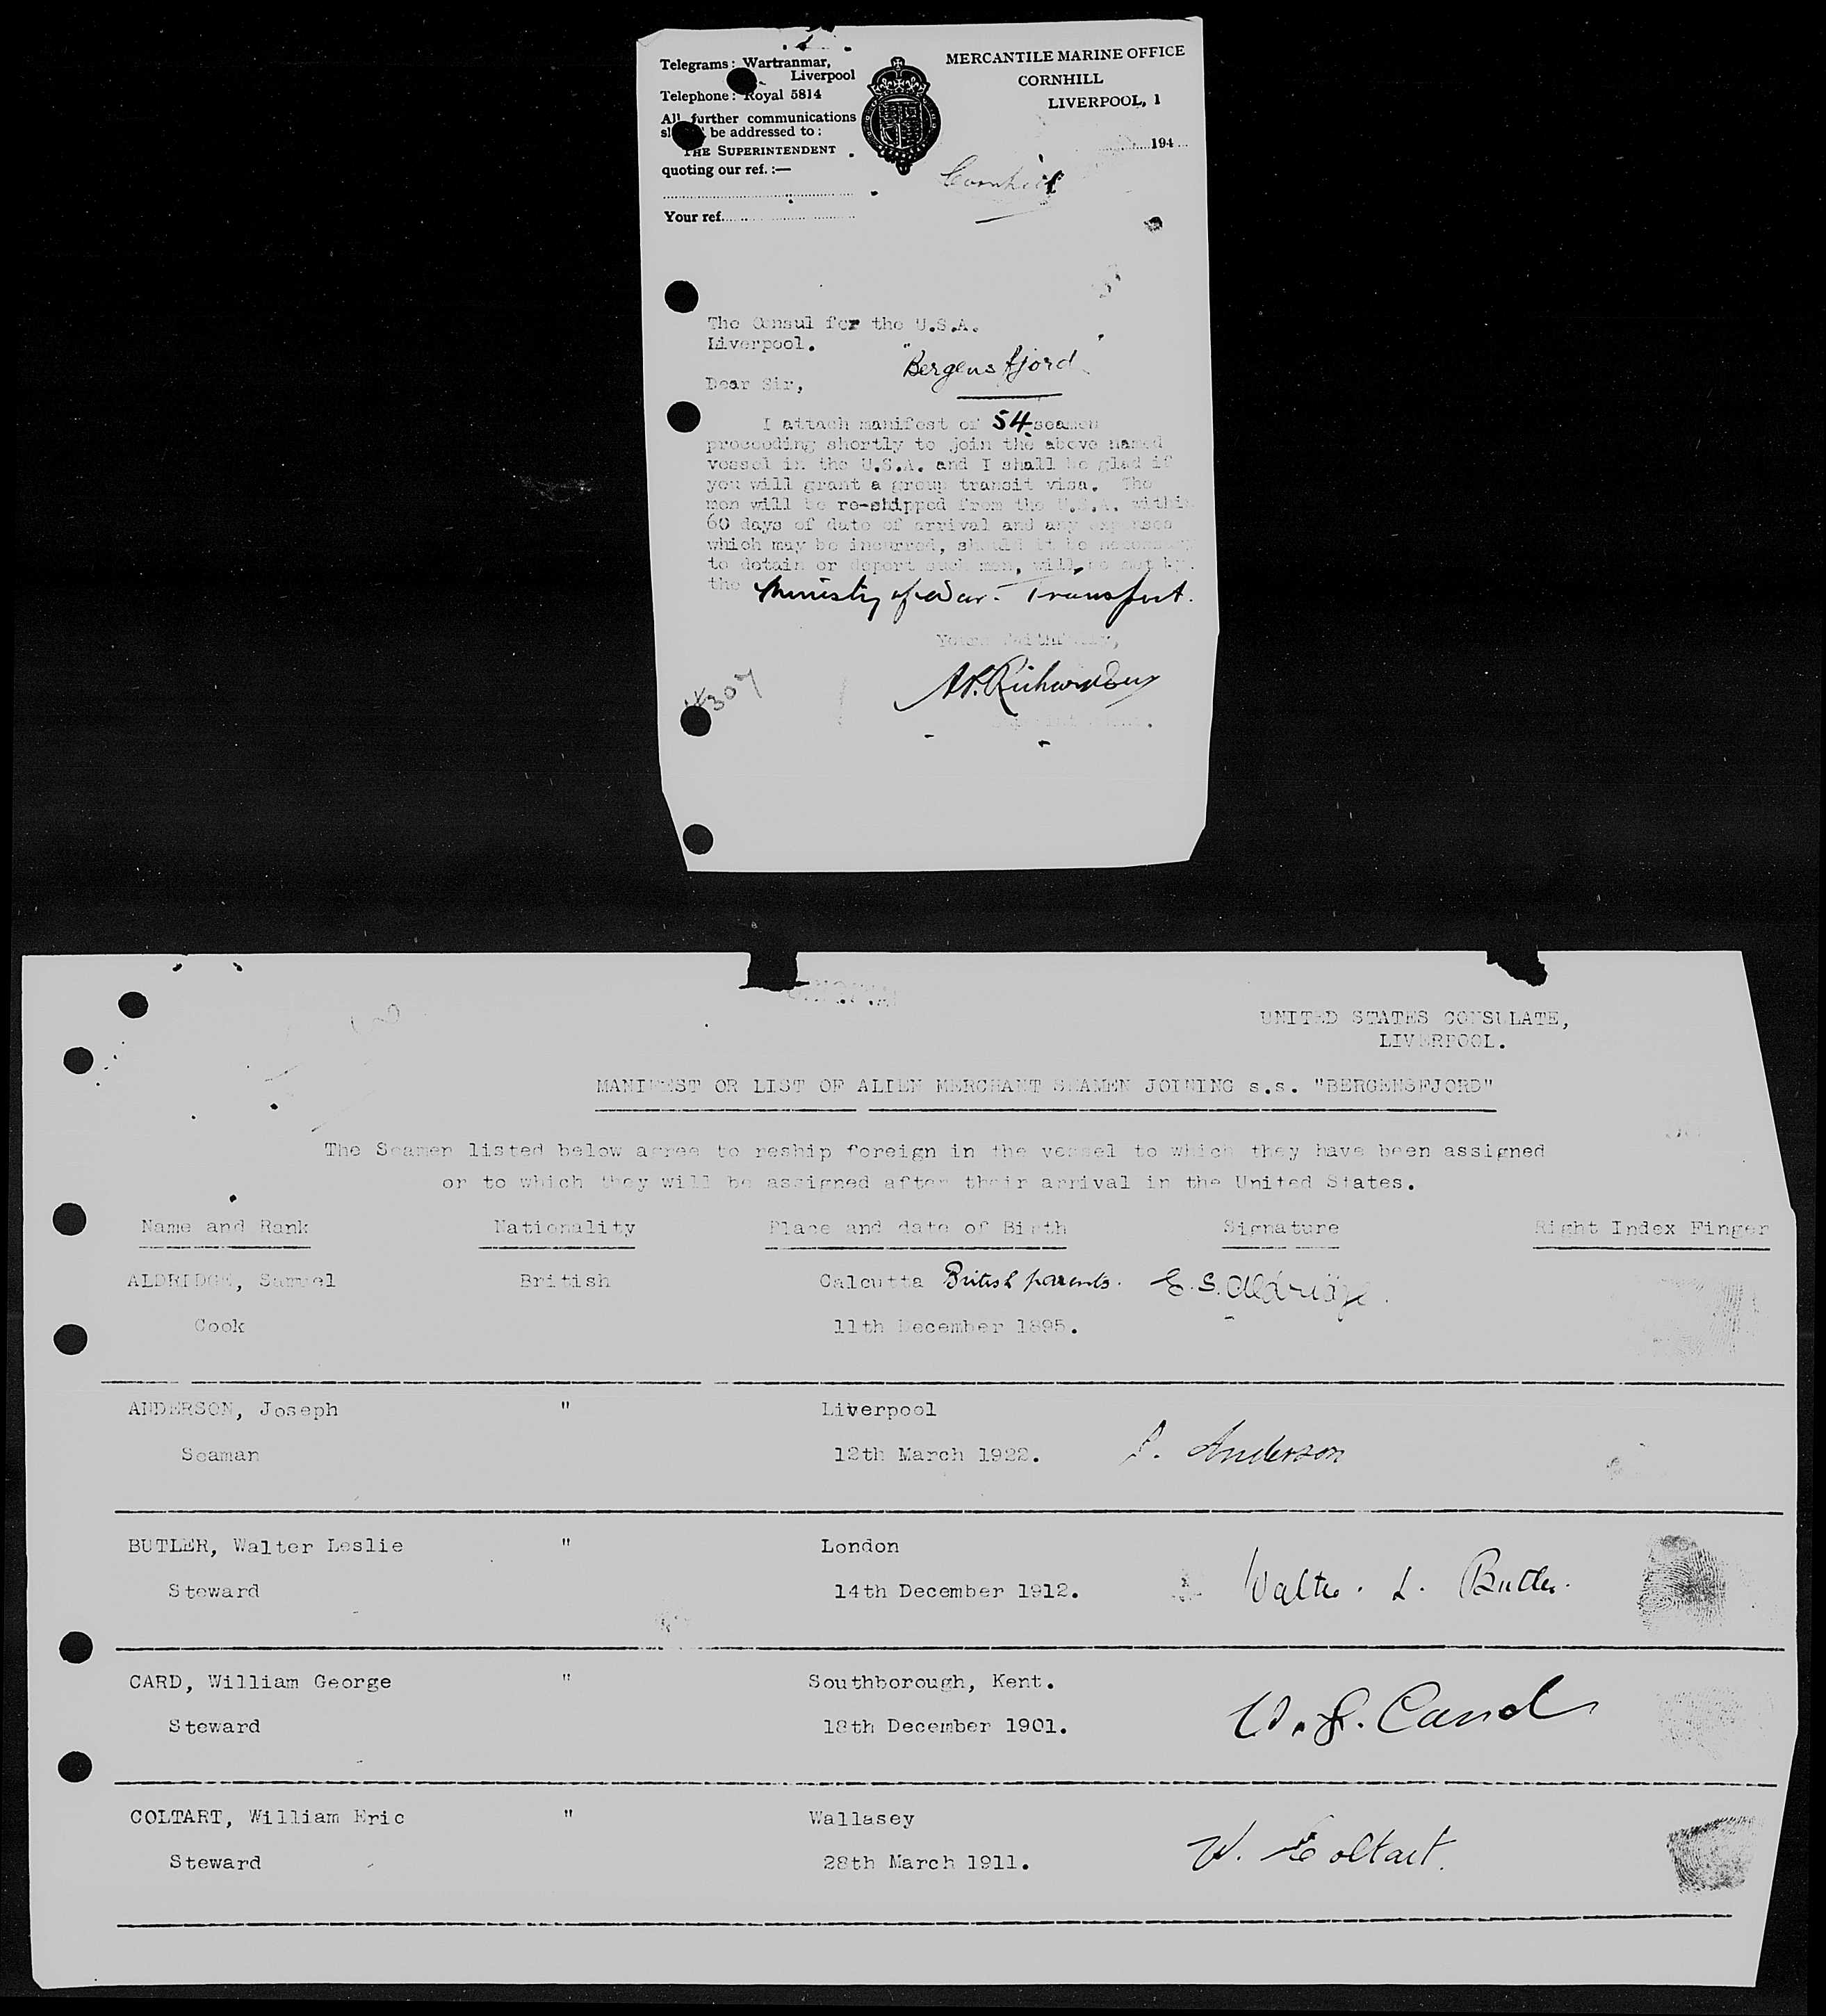 Telegrams: Wartranmar,
Liverpool
Telephone: Royal 5814
All further communications
be addressed to:
THE SUPERINTENDENT
quoting our ref.:—
Your ref.
MERCANTILE MARINE OFFICE
CORNHILL
LIVERPOOL, 1
194
Cornhill
The Consul for the U.S.A.
Liverpool.
"Bergensfjord"
Dear Sir,
I attach manifest of 54 seamen
proceeding shortly to join the above named
vessel in the U.S.A. and I shall be glad if
you will grant a group transit visa. The
men will be re-shipped from the U.S.A. within
60 days of date of arrival and any expenses
which may be incurred, should it be necessary
to detain or deport such men, will be met by
the Ministry of War Transport.
Yours faithfully,
A.P. Richardson
UNITED STATES CONSULATE,
LIVERPOOL.
MANIFEST OR LIST OF ALIEN MERCHANT SEAMEN JOINING s.s. "BERGENSFJORD"
The Seamen listed below agree to reship foreign in the vessel to which they have been assigned
or to which they will be assigned after their arrival in the United States.
Name and Rank Nationality Place and date of Birth Signature Right Index Finger
ALDRIDGE, Samuel British Calcutta British parents. E. S. Aldridge.
Cook 11th December 1895.
ANDERSON, Joseph " Liverpool
Seaman 12th March 1922. J. Anderson
BUTLER, Walter Leslie " London
Steward 14th December 1912. Walter. L. Butler.
CARD, William George " Southborough, Kent.
Steward 18th December 1901. W. G. Card
COLTART, William Eric " Wallasey
Steward 28th March 1911. W. E Coltart.